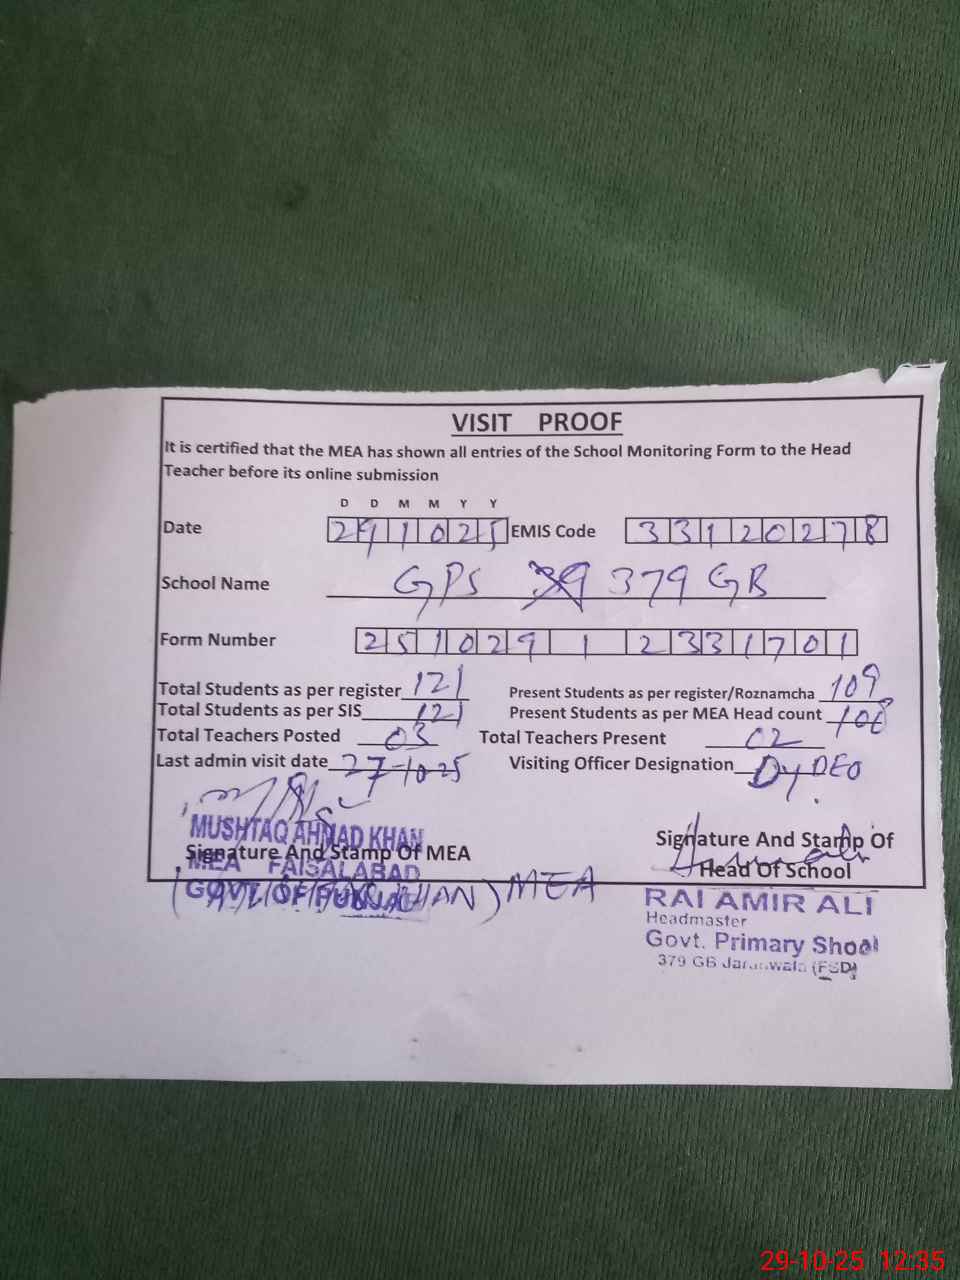 VISIT PROOF
It is certified that the MEA has shown all entries of the School Monitoring Form to the Head
Teacher before its online submission
D D M M Y Y
Date 291025 EMIS Code 33120278
School Name GPS 379 GB
Form Number 251029 1 2331701
Total Students as per register 121 Present Students as per register/Roznamcha 109
Total Students as per SIS 121 Present Students as per MEA Head count 108
Total Teachers Posted 03 Total Teachers Present 02
Last admin visit date 27-10-25 Visiting Officer Designation Dy DEO
MUSHTAQ AHMAD KHAN
Signature And Stamp Of MEA Signature And Stamp Of
MEA FAISALABAD Head Of School
GOVT. OF PUNJAB KHAN) MEA RAI AMIR ALI
Headmaster
Govt. Primary Shool
379 GB Jaranwala (FSD)
29-10-25 12:35